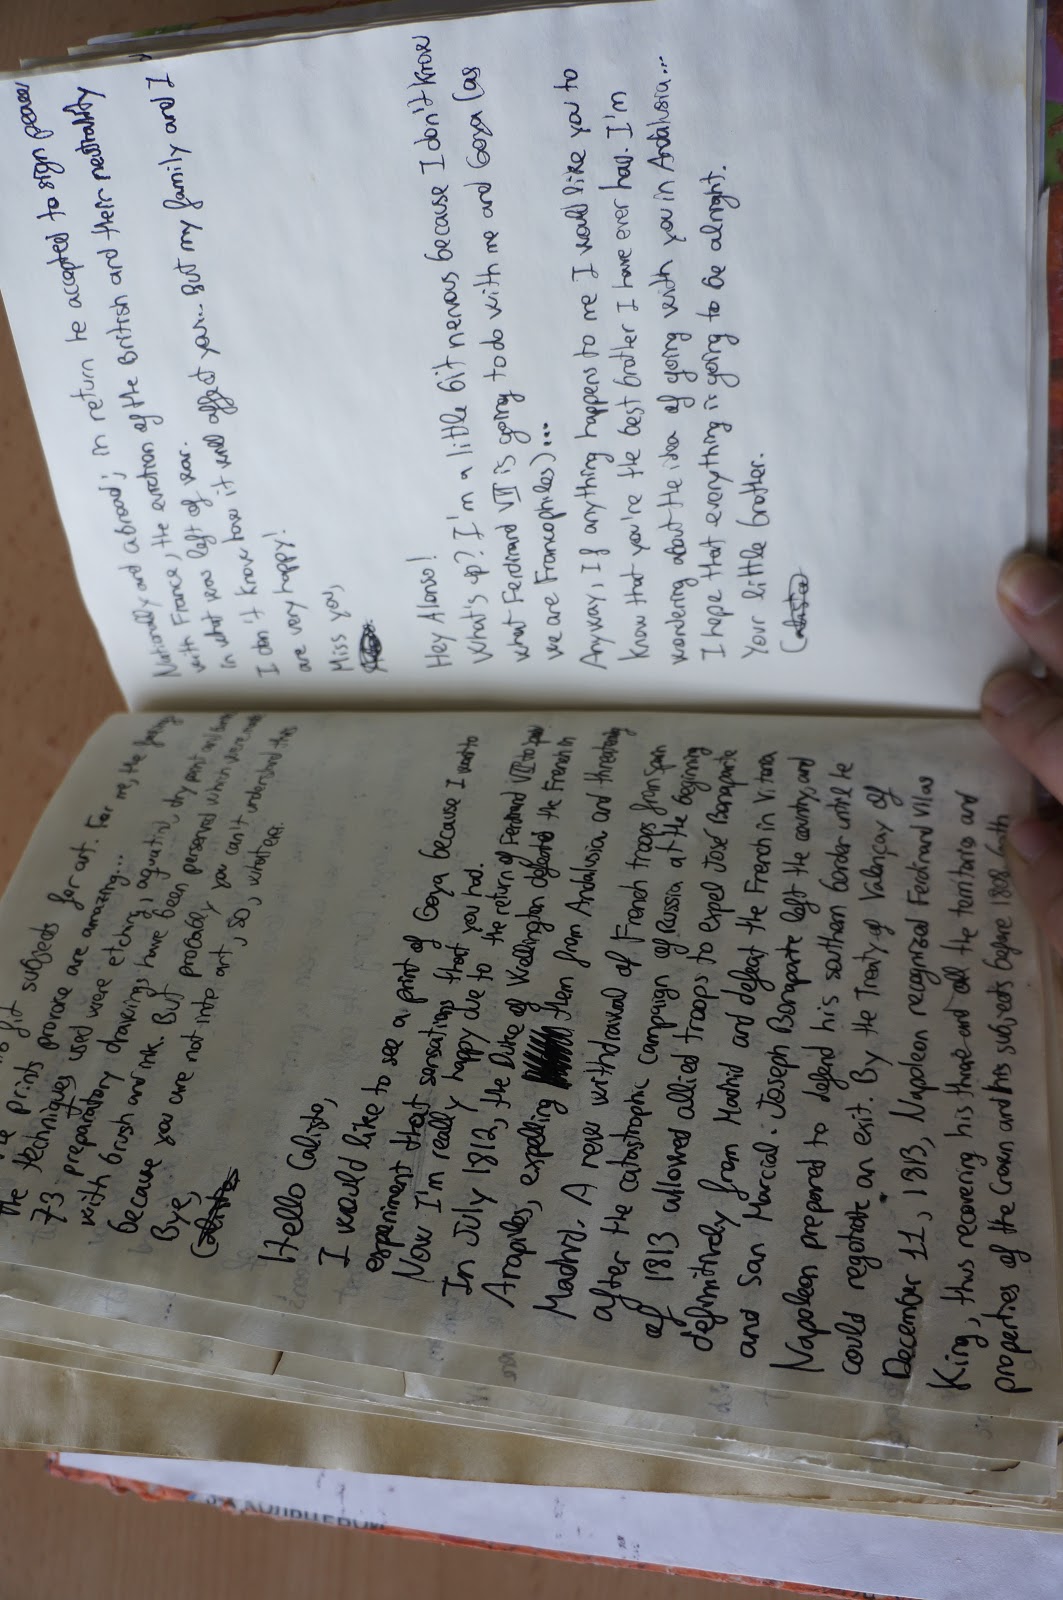 the prints provoke are amazing...
the techniques used were etching, aquatint, drypoint and burin
73 preparatory drawings have been preserved which were made
with brush and ink. But probably you can't understand this
because you are not into art, so, whatever.
Bye,
Calisto
Hello Calisto,
I would like to see a print of Goya because I want to
experiment that sensations that you had.
Now I'm really happy due to the return of Ferdinand VII
In July 1812, the Duke of Wellington defeated the French in
Arapiles, expelling them from Andalusia and threatening
Madrid. A new withdrawal of French troops from Spain
after the catastrophic campaign of Russia at the beginning
of 1813 allowed allied troops to expel José Bonaparte
definitively from Madrid and defeat the French in Vitoria
and San Marcial. Joseph Bonaparte left the country, and
Napoleon prepared to defend his southern border until he
could negotiate an exit. By the Treaty of Valençay of
December 11, 1813, Napoleon recognized Ferdinand VII as
King, thus recovering his throne and all the territories and
properties of the Crown and his subjects before 1808 both
Nationally and abroad; in return he accepted to sign peace
with France, the eviction of the British and their neutrality
in what was left of war.
I don't know how it will affect you... But my family and I
are very happy!
Miss you,
Hey Alonso!
What's up? I'm a little bit nervous because I don't know
what Ferdinand VII is going to do with me and Goya (as
we are Francophiles)...
Anyway, If anything happens to me I would like you to
know that you're the best brother I have ever had. I'm
wondering about the idea of going with you in Andalusia...
I hope that everything is going to be alright.
Your little brother.
Calisto